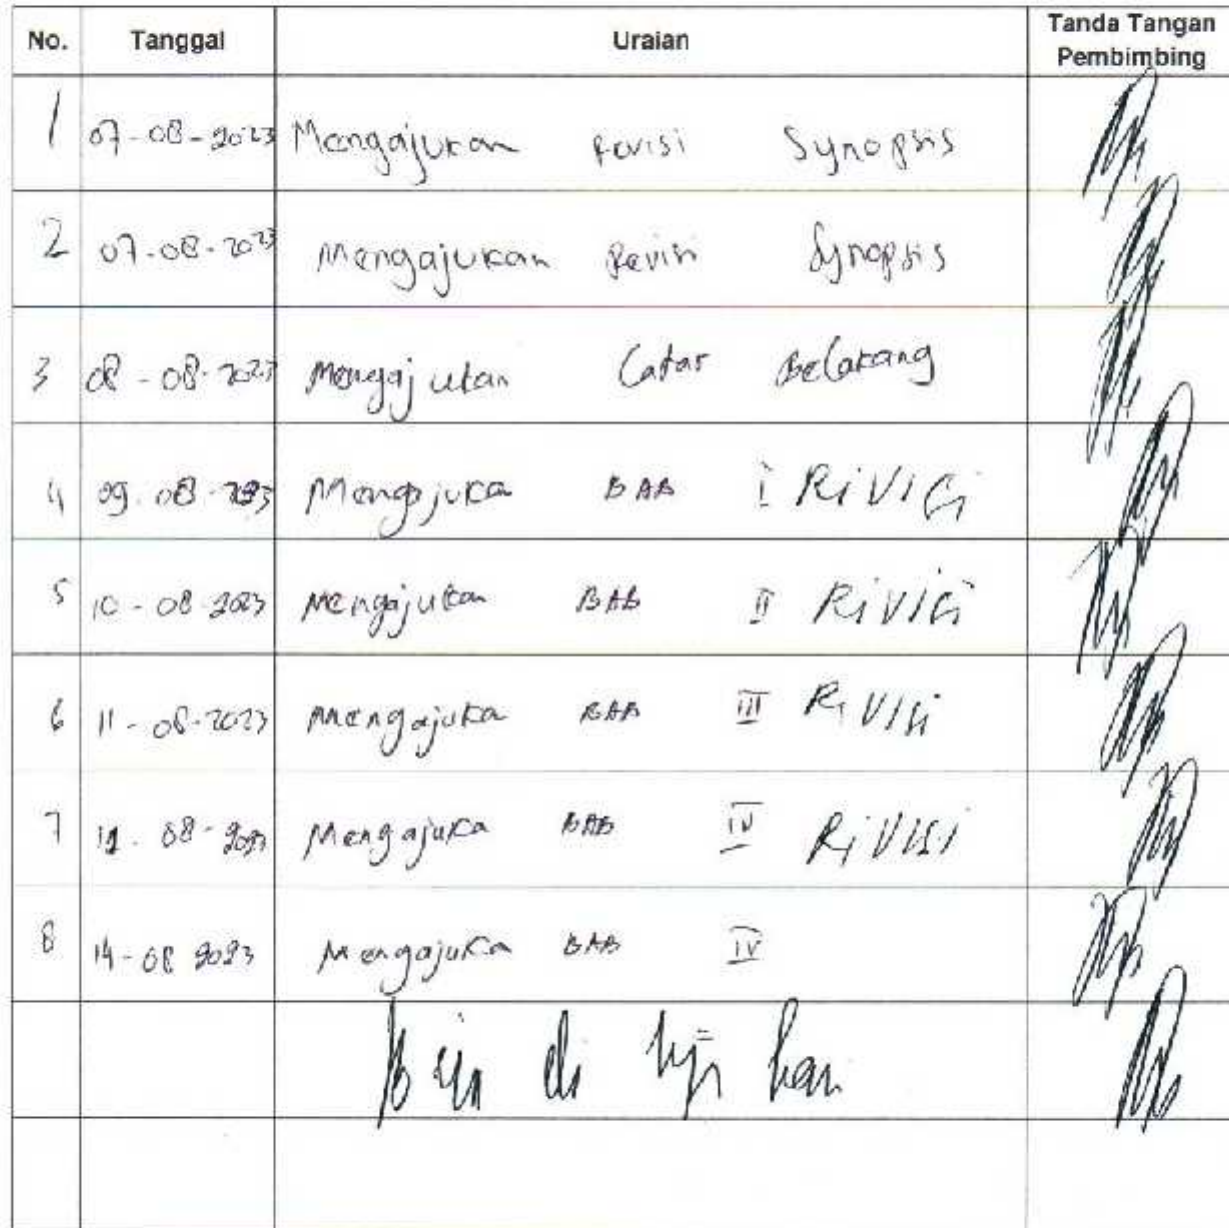 No. Tanggal Uraian Tanda Tangan Pembimbing
1 07-08-2023 Mengajukan revisi Synopsis
2 07-08-2023 Mengajukan Revisi Synopsis
3 08-08-2023 Mengajukan Latar Belakang
4 09-08-2023 Mengajuka BAB I RiViCi
5 10-08-2023 Mengajukan BAB II RiViCi
6 11-08-2023 Mengajuka BAB III RiVisi
7 12-08-2023 Mengajuka BAB IV RiVisi
8 14-08 2023 Mengajuka BAB IV
di uji kan